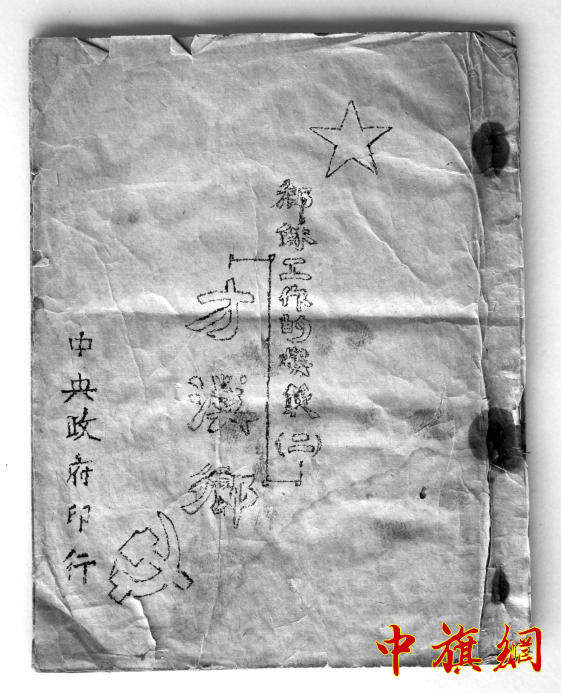 鄉蘇工作的模範(二)
才溪鄉
中央政府印行
中旗網